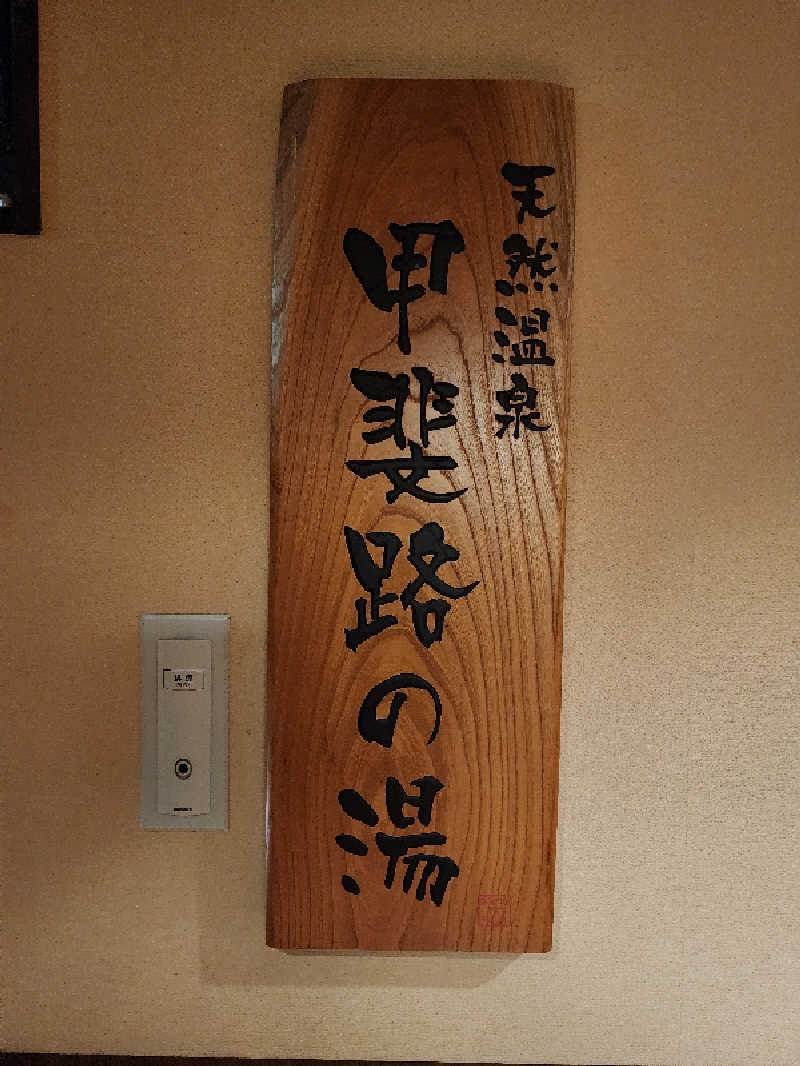 天然温泉
甲斐路の湯